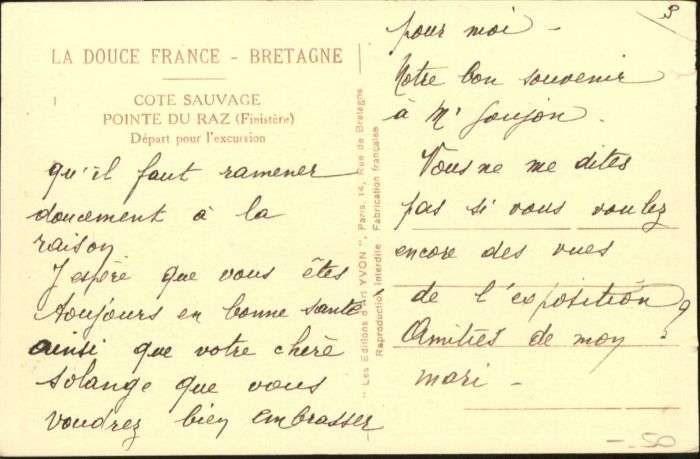 LA DOUCE FRANCE - BRETAGNE
COTE SAUVAGE
POINTE DU RAZ (Finistère)
Départ pour l'excursion
qu'il faut ramener
doucement à la
raison
J'espère que vous êtes
toujours en bonne santé
ainsi que votre chère
Solange que vous
voudrez bien embrasser
" Les Editions d'Art YVON ", Paris, 14, Rue de Bretagne
Reproduction Interdite Fabrication française
pour moi -
Notre bon souvenir
à Mr Goujon.
Vous ne me dites
pas si vous voulez
encore des vues
de l'exposition ?
Amitiés de mon
mari -
-.50